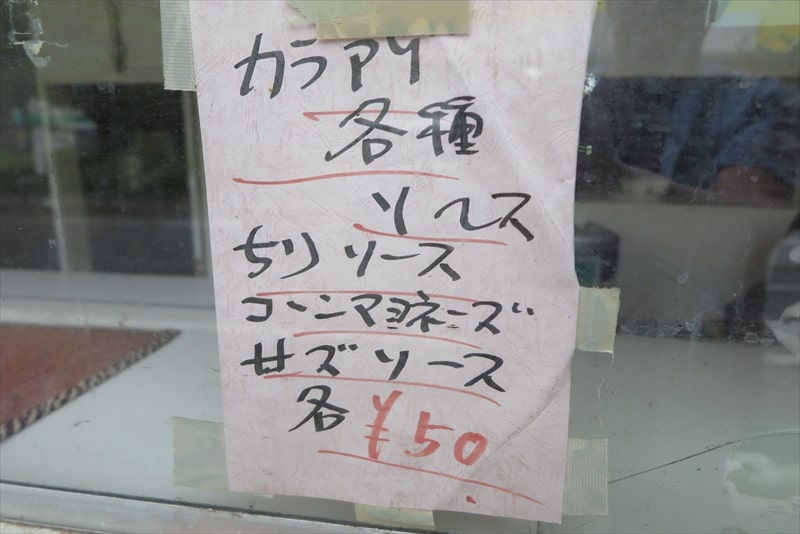 カラアゲ
各種
ソース
ちリソース
コーンマヨネーズ
サズソース
各¥50